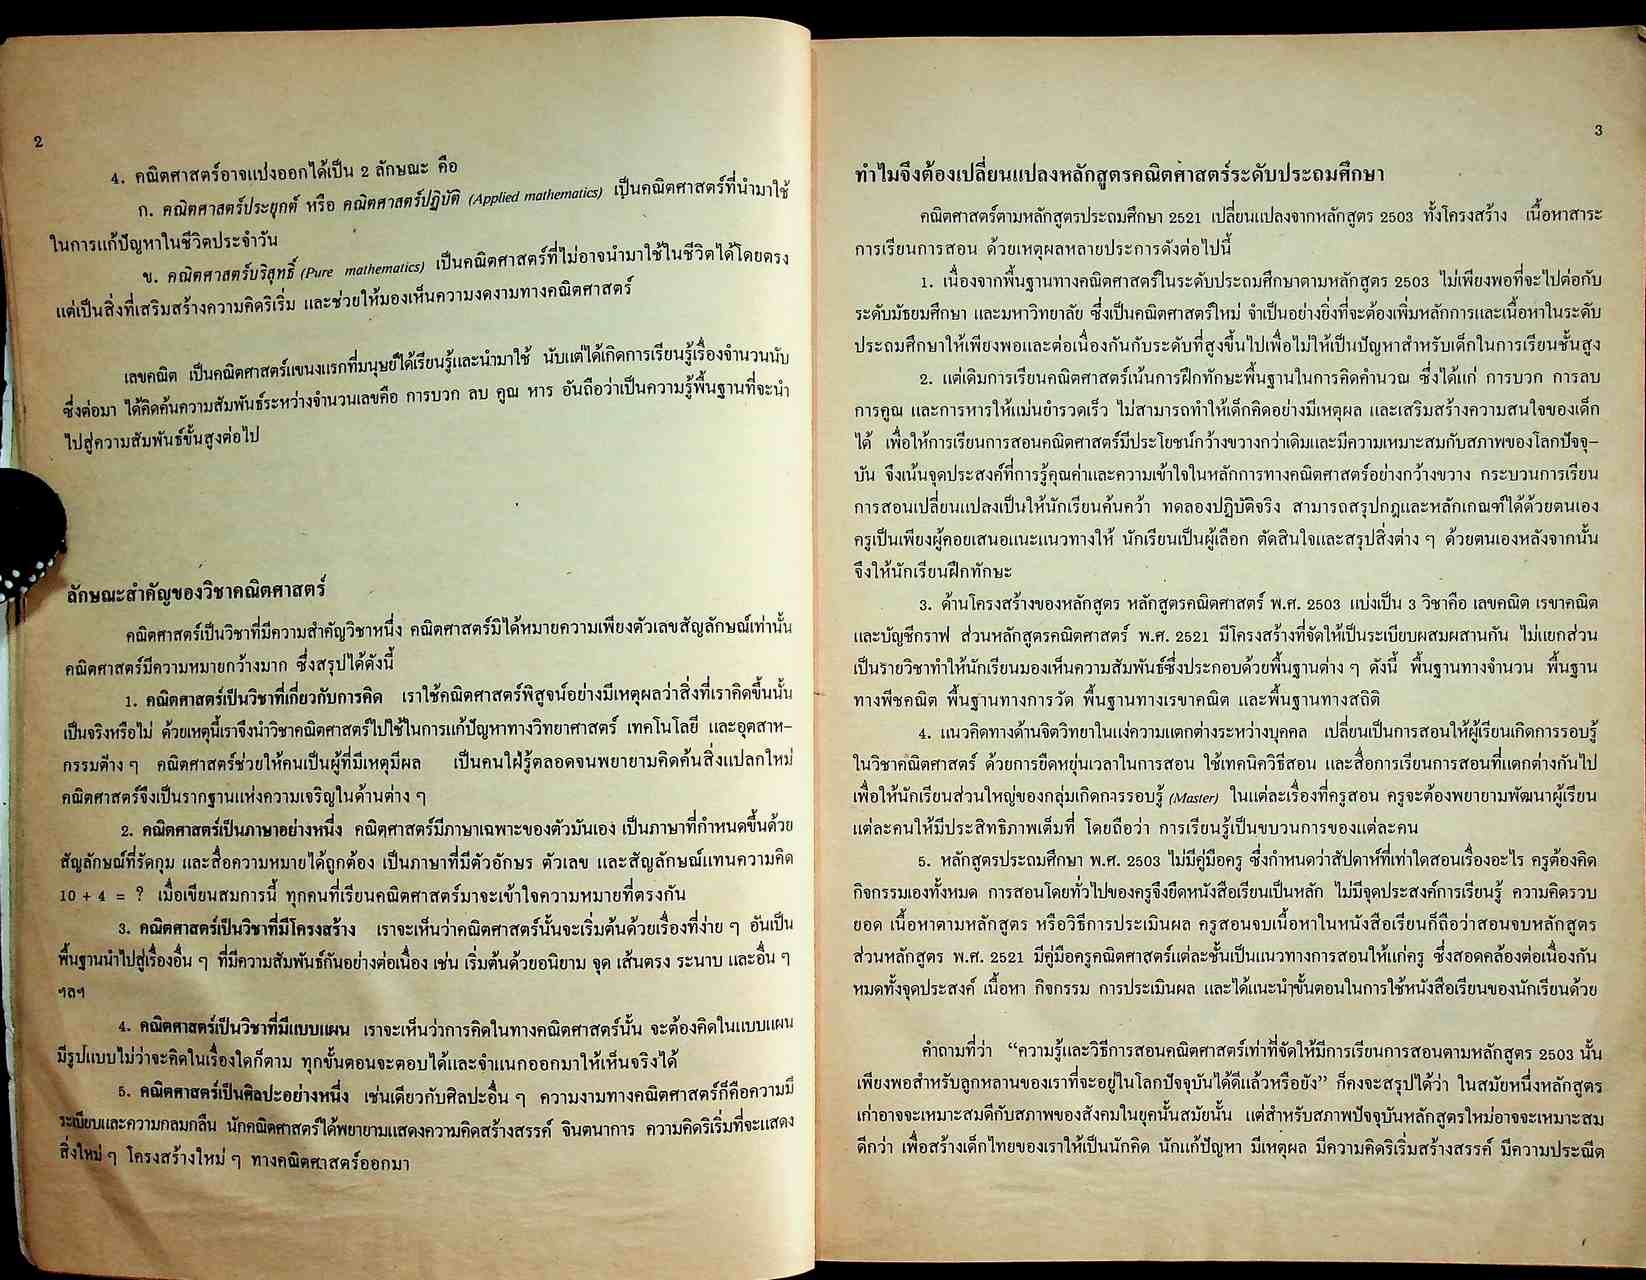 2
4. คณิตศาสตร์อาจแบ่งออกได้เป็น 2 ลักษณะ คือ
ก. คณิตศาสตร์ประยุกต์ หรือ คณิตศาสตร์ปฏิบัติ (Applied mathematics) เป็นคณิตศาสตร์ที่นำมาใช้
ในการแก้ปัญหาในชีวิตประจำวัน
ข. คณิตศาสตร์บริสุทธิ์ (Pure mathematics) เป็นคณิตศาสตร์ที่ไม่อาจนำมาใช้ในชีวิตได้โดยตรง
แต่เป็นสิ่งที่เสริมสร้างความคิดริเริ่ม และช่วยให้มองเห็นความงดงามทางคณิตศาสตร์
เลขคณิต เป็นคณิตศาสตร์แขนงแรกที่มนุษย์ได้เรียนรู้และนำมาใช้ นับแต่ได้เกิดการเรียนรู้เรื่องจำนวนนับ
ซึ่งต่อมา ได้คิดค้นความสัมพันธ์ระหว่างจำนวนเลขคือ การบวก ลบ คูณ หาร อันถือว่าเป็นความรู้พื้นฐานที่จะนำ
ไปสู่ความสัมพันธ์ขั้นสูงต่อไป
ลักษณะสำคัญของวิชาคณิตศาสตร์
คณิตศาสตร์เป็นวิชาที่มีความสำคัญวิชาหนึ่ง คณิตศาสตร์มิได้หมายความเพียงตัวเลขสัญลักษณ์เท่านั้น
คณิตศาสตร์มีความหมายกว้างมาก ซึ่งสรุปได้ดังนี้
1. คณิตศาสตร์เป็นวิชาที่เกี่ยวกับการคิด เราใช้คณิตศาสตร์พิสูจน์อย่างมีเหตุผลว่าสิ่งที่เราคิดขึ้นนั้น
เป็นจริงหรือไม่ ด้วยเหตุนี้เราจึงนำวิชาคณิตศาสตร์ไปใช้ในการแก้ปัญหาทางวิทยาศาสตร์ เทคโนโลยี และอุตสาห-
กรรมต่าง ๆ คณิตศาสตร์ช่วยให้คนเป็นผู้ที่มีเหตุมีผล เป็นคนใฝ่รู้ตลอดจนพยายามคิดค้นสิ่งแปลกใหม่
คณิตศาสตร์จึงเป็นรากฐานแห่งความเจริญในด้านต่าง ๆ
2. คณิตศาสตร์เป็นภาษาอย่างหนึ่ง คณิตศาสตร์มีภาษาเฉพาะของตัวมันเอง เป็นภาษาที่กำหนดขึ้นด้วย
สัญลักษณ์ที่รัดกุม และสื่อความหมายได้ถูกต้อง เป็นภาษาที่มีตัวอักษร ตัวเลข และสัญลักษณ์แทนความคิด
10 + 4 = ? เมื่อเขียนสมการนี้ ทุกคนที่เรียนคณิตศาสตร์มาจะเข้าใจความหมายที่ตรงกัน
3. คณิตศาสตร์เป็นวิชาที่มีโครงสร้าง เราจะเห็นว่าคณิตศาสตร์นั้นจะเริ่มต้นด้วยเรื่องที่ง่าย ๆ อันเป็น
พื้นฐานนำไปสู่เรื่องอื่น ๆ ที่มีความสัมพันธ์กันอย่างต่อเนื่อง เช่น เริ่มต้นด้วยอนิยาม จุด เส้นตรง ระนาบ และอื่น ๆ
ฯลฯ
4. คณิตศาสตร์เป็นวิชาที่มีแบบแผน เราจะเห็นว่าการคิดในทางคณิตศาสตร์นั้น จะต้องคิดในแบบแผน
มีรูปแบบไม่ว่าจะคิดในเรื่องใดก็ตาม ทุกขั้นตอนจะตอบได้และจำแนกออกมาให้เห็นจริงได้
5. คณิตศาสตร์เป็นศิลปะอย่างหนึ่ง เช่นเดียวกับศิลปะอื่น ๆ ความงามทางคณิตศาสตร์ก็คือความมี
ระเบียบและความกลมกลืน นักคณิตศาสตร์ได้พยายามแสดงความคิดสร้างสรรค์ จินตนาการ ความคิดริเริ่มที่จะแสดง
สิ่งใหม่ ๆ โครงสร้างใหม่ ๆ ทางคณิตศาสตร์ออกมา
3
ทำไมจึงต้องเปลี่ยนแปลงหลักสูตรคณิตศาสตร์ระดับประถมศึกษา
คณิตศาสตร์ตามหลักสูตรประถมศึกษา 2521 เปลี่ยนแปลงจากหลักสูตร 2503 ทั้งโครงสร้าง เนื้อหาสาระ
การเรียนการสอน ด้วยเหตุผลหลายประการดังต่อไปนี้
1. เนื่องจากพื้นฐานทางคณิตศาสตร์ในระดับประถมศึกษาตามหลักสูตร 2503 ไม่เพียงพอที่จะไปต่อกับ
ระดับมัธยมศึกษา และมหาวิทยาลัย ซึ่งเป็นคณิตศาสตร์ใหม่ จำเป็นอย่างยิ่งที่จะต้องเพิ่มหลักการและเนื้อหาในระดับ
ประถมศึกษาให้เพียงพอและต่อเนื่องกันกับระดับที่สูงขึ้นไปเพื่อไม่ให้เป็นปัญหาสำหรับเด็กในการเรียนชั้นสูง
2. แต่เดิมการเรียนคณิตศาสตร์เน้นการฝึกทักษะพื้นฐานในการคิดคำนวณ ซึ่งได้แก่ การบวก การลบ
การคูณ และการหารให้แม่นยำรวดเร็ว ไม่สามารถทำให้เด็กคิดอย่างมีเหตุผล และเสริมสร้างความสนใจของเด็ก
ได้ เพื่อให้การเรียนการสอนคณิตศาสตร์มีประโยชน์กว้างขวางกว่าเดิมและมีความเหมาะสมกับสภาพของโลกปัจจุ-
บัน จึงเน้นจุดประสงค์ที่การรู้คุณค่าและความเข้าใจในหลักการทางคณิตศาสตร์อย่างกว้างขวาง กระบวนการเรียน
การสอนเปลี่ยนแปลงเป็นให้นักเรียนค้นคว้า ทดลองปฏิบัติจริง สามารถสรุปกฎและหลักเกณฑ์ได้ด้วยตนเอง
ครูเป็นเพียงผู้คอยเสนอแนะแนวทางให้ นักเรียนเป็นผู้เลือก ตัดสินใจและสรุปสิ่งต่าง ๆ ด้วยตนเองหลังจากนั้น
จึงให้นักเรียนฝึกทักษะ
3. ด้านโครงสร้างของหลักสูตร หลักสูตรคณิตศาสตร์ พ.ศ. 2503 แบ่งเป็น 3 วิชาคือ เลขคณิต เรขาคณิต
และบัญชีกราฟ ส่วนหลักสูตรคณิตศาสตร์ พ.ศ. 2521 มีโครงสร้างที่จัดให้เป็นระเบียบผสมผสานกัน ไม่แยกส่วน
เป็นรายวิชาทำให้นักเรียนมองเห็นความสัมพันธ์ซึ่งประกอบด้วยพื้นฐานต่าง ๆ ดังนี้ พื้นฐานทางจำนวน พื้นฐาน
ทางพีชคณิต พื้นฐานทางการวัด พื้นฐานทางเรขาคณิต และพื้นฐานทางสถิติ
4. แนวคิดทางด้านจิตวิทยาในแง่ความแตกต่างระหว่างบุคคล เปลี่ยนเป็นการสอนให้ผู้เรียนเกิดการรอบรู้
ในวิชาคณิตศาสตร์ ด้วยการยืดหยุ่นเวลาในการสอน ใช้เทคนิควิธีสอน และสื่อการเรียนการสอนที่แตกต่างกันไป
เพื่อให้นักเรียนส่วนใหญ่ของกลุ่มเกิดการรอบรู้ (Master) ในแต่ละเรื่องที่ครูสอน ครูจะต้องพยายามพัฒนาผู้เรียน
แต่ละคนให้มีประสิทธิภาพเต็มที่ โดยถือว่า การเรียนรู้เป็นขบวนการของแต่ละคน
5. หลักสูตรประถมศึกษา พ.ศ. 2503 ไม่มีคู่มือครู ซึ่งกำหนดว่าสัปดาห์ที่เท่าใดสอนเรื่องอะไร ครูต้องคิด
กิจกรรมเองทั้งหมด การสอนโดยทั่วไปของครูจึงยึดหนังสือเรียนเป็นหลัก ไม่มีจุดประสงค์การเรียนรู้ ความคิดรวบ
ยอด เนื้อหาตามหลักสูตร หรือวิธีการประเมินผล ครูสอนจบเนื้อหาในหนังสือเรียนก็ถือว่าสอนจบหลักสูตร
ส่วนหลักสูตร พ.ศ. 2521 มีคู่มือครูคณิตศาสตร์แต่ละชั้นเป็นแนวทางการสอนให้แก่ครู ซึ่งสอดคล้องต่อเนื่องกัน
หมดทั้งจุดประสงค์ เนื้อหา กิจกรรม การประเมินผล และได้แนะนำขั้นตอนในการใช้หนังสือเรียนของนักเรียนด้วย
คำถามที่ว่า “ความรู้และวิธีการสอนคณิตศาสตร์เท่าที่จัดให้มีการเรียนการสอนตามหลักสูตร 2503 นั้น
เพียงพอสำหรับลูกหลานของเราที่จะอยู่ในโลกปัจจุบันได้ดีแล้วหรือยัง” ก็คงจะสรุปได้ว่า ในสมัยหนึ่งหลักสูตร
เก่าอาจจะเหมาะสมดีกับสภาพของสังคมในยุคนั้นสมัยนั้น แต่สำหรับสภาพปัจจุบันหลักสูตรใหม่อาจจะเหมาะสม
ดีกว่า เพื่อสร้างเด็กไทยของเราให้เป็นนักคิด นักแก้ปัญหา มีเหตุผล มีความคิดริเริ่มสร้างสรรค์ มีความประณีต